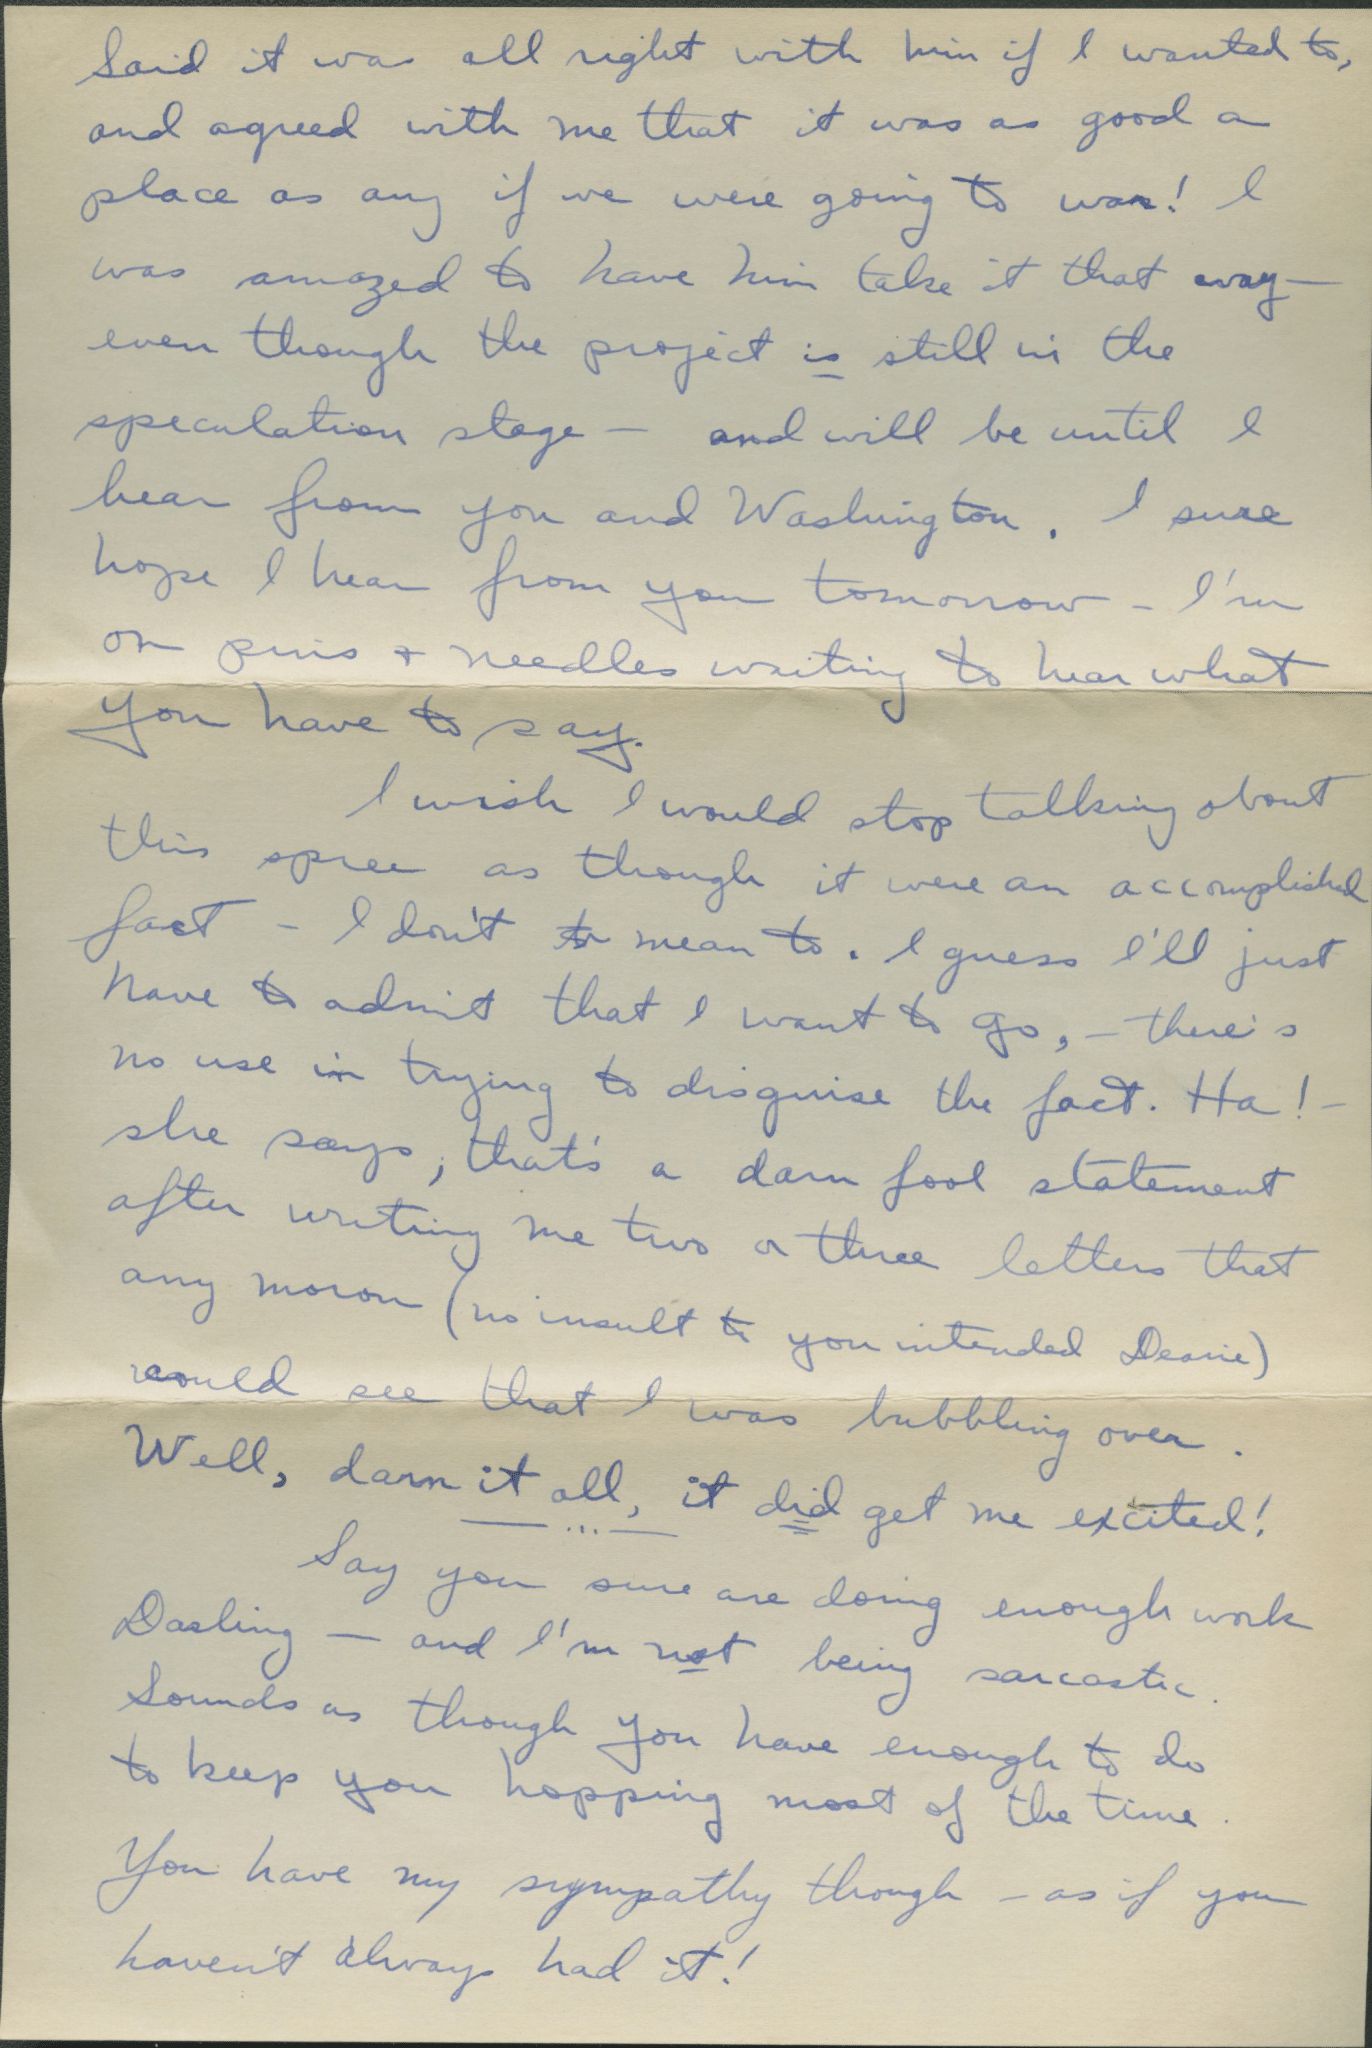 Said it was all right with him if I wanted to,
and agreed with me that it was as good a
place as any if we were going to war! I
was amazed to have him take it that way —
even though the project is still in the
speculation stage — and will be until I
hear from you and Washington. I sure
hope I hear from you tomorrow - I'm
on pins & needles waiting to hear what
you have to say.
I wish I would stop talking about
this spree as though it were an accomplished
fact - I don't to mean to. I guess I'll just
have to admit that I want to go, - there's
no use in trying to disguise the fact. Ha! -
she says, that's a darn fool statement
after writing me two or three letters that
any moron (no insult to you intended Dearie)
would see that I was bubbling over.
Well, darn it all, it did get me excited!
Say you sure are doing enough work
Darling — and I'm not being sarcastic.
Sounds as though you have enough to do
to keep you hopping most of the time.
You have my sympathy though - as if you
haven't always had it!